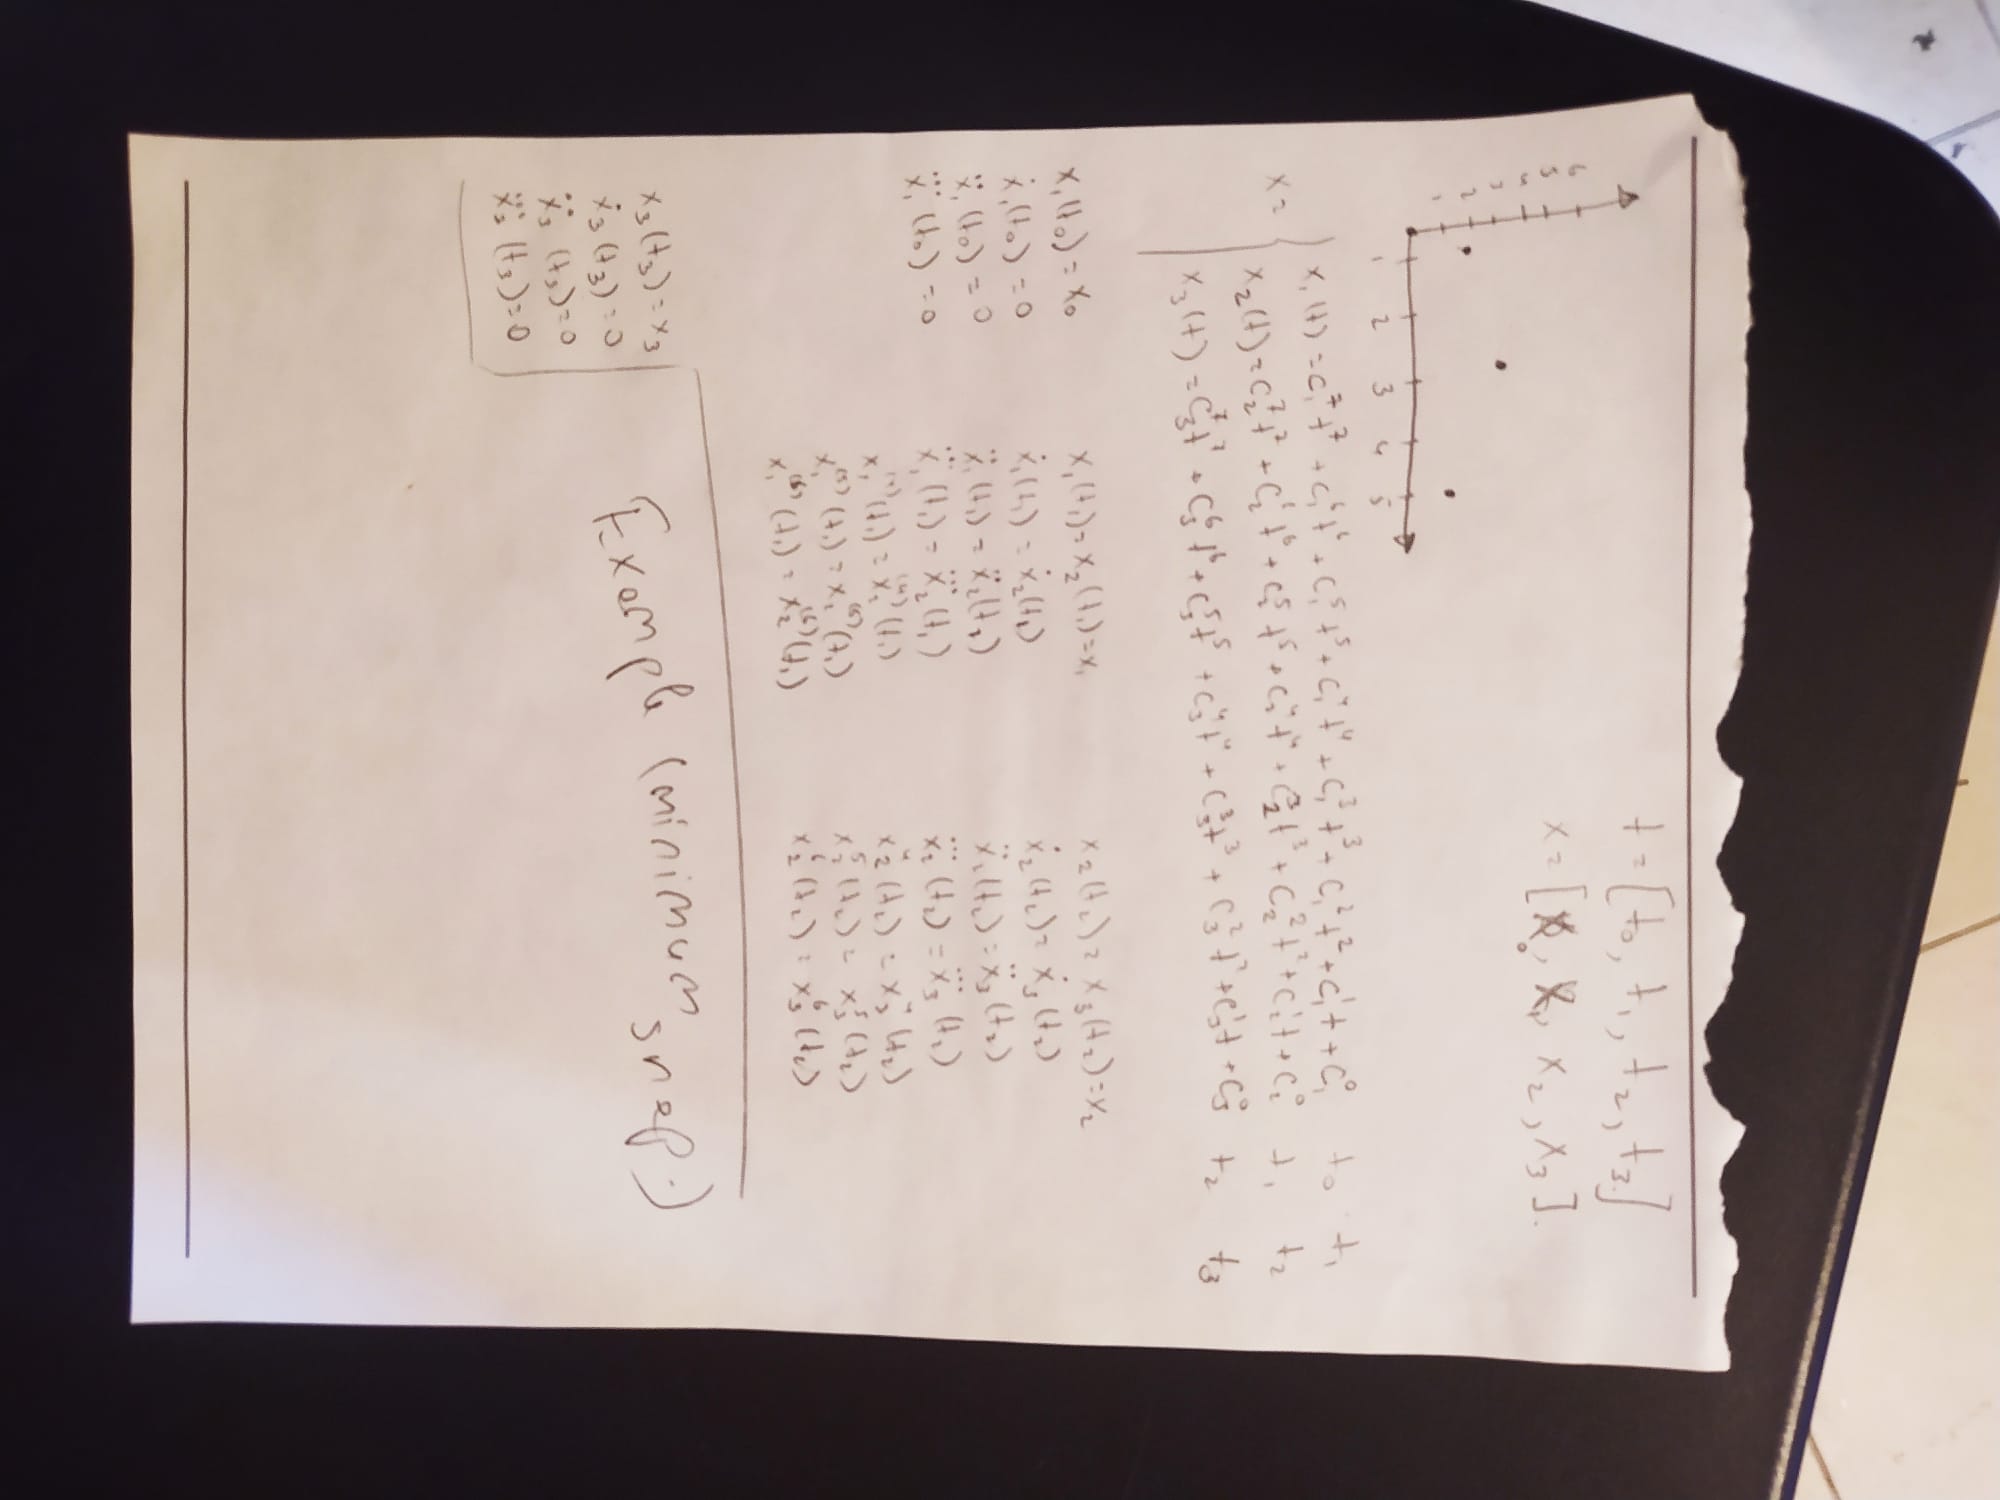 t = [t₀, t₁, t₂, t₃]
x = [x₀, x₁, x₂, x₃].
6
5
4
3
2
1
1 2 3 4 5
x₁(t) = c₁⁷t⁷ + c₁⁶t⁶ + c₁⁵t⁵ + c₁⁴t⁴ + c₁³t³ + c₁²t² + c₁¹t + c₁⁰ t₀ t₁
x = { x₂(t) = c₂⁷t⁷ + c₂⁶t⁶ + c₂⁵t⁵ + c₂⁴t⁴ + c₂³t³ + c₂²t² + c₂¹t + c₂⁰ t₁ t₂
x₃(t) = c₃⁷t⁷ + c₃⁶t⁶ + c₃⁵t⁵ + c₃⁴t⁴ + c₃³t³ + c₃²t² + c₃¹t + c₃⁰ t₂ t₃
x₁(t₀) = x₀
ẋ₁(t₀) = 0
ẍ₁(t₀) = 0
x⃛₁(t₀) = 0
x₁(t₁) = x₂(t₁) = x₁
ẋ₁(t₁) = ẋ₂(t₁)
ẍ₁(t₁) = ẍ₂(t₂)
x⃛₁(t₁) = x⃛₂(t₁)
x₁⁽⁴⁾(t₁) = x₂⁽⁴⁾(t₁)
x₁⁽⁵⁾(t₁) = x₂⁽⁵⁾(t₁)
x₁⁽⁶⁾(t₁) = x₂⁽⁶⁾(t₁)
x₂(t₂) = x₃(t₂) = x₂
ẋ₂(t₂) = ẋ₃(t₂)
ẍ₂(t₂) = ẍ₃(t₂)
x⃛₂(t₂) = x⃛₃(t₂)
x₂⁴(t₂) = x₃⁴(t₂)
x₂⁵(t₂) = x₃⁵(t₂)
x₂⁶(t₂) = x₃⁶(t₂)
x₃(t₃) = x₃
ẋ₃(t₃) = 0
ẍ₃(t₃) = 0
x⃛₃(t₃) = 0
Example (minimum snap.)